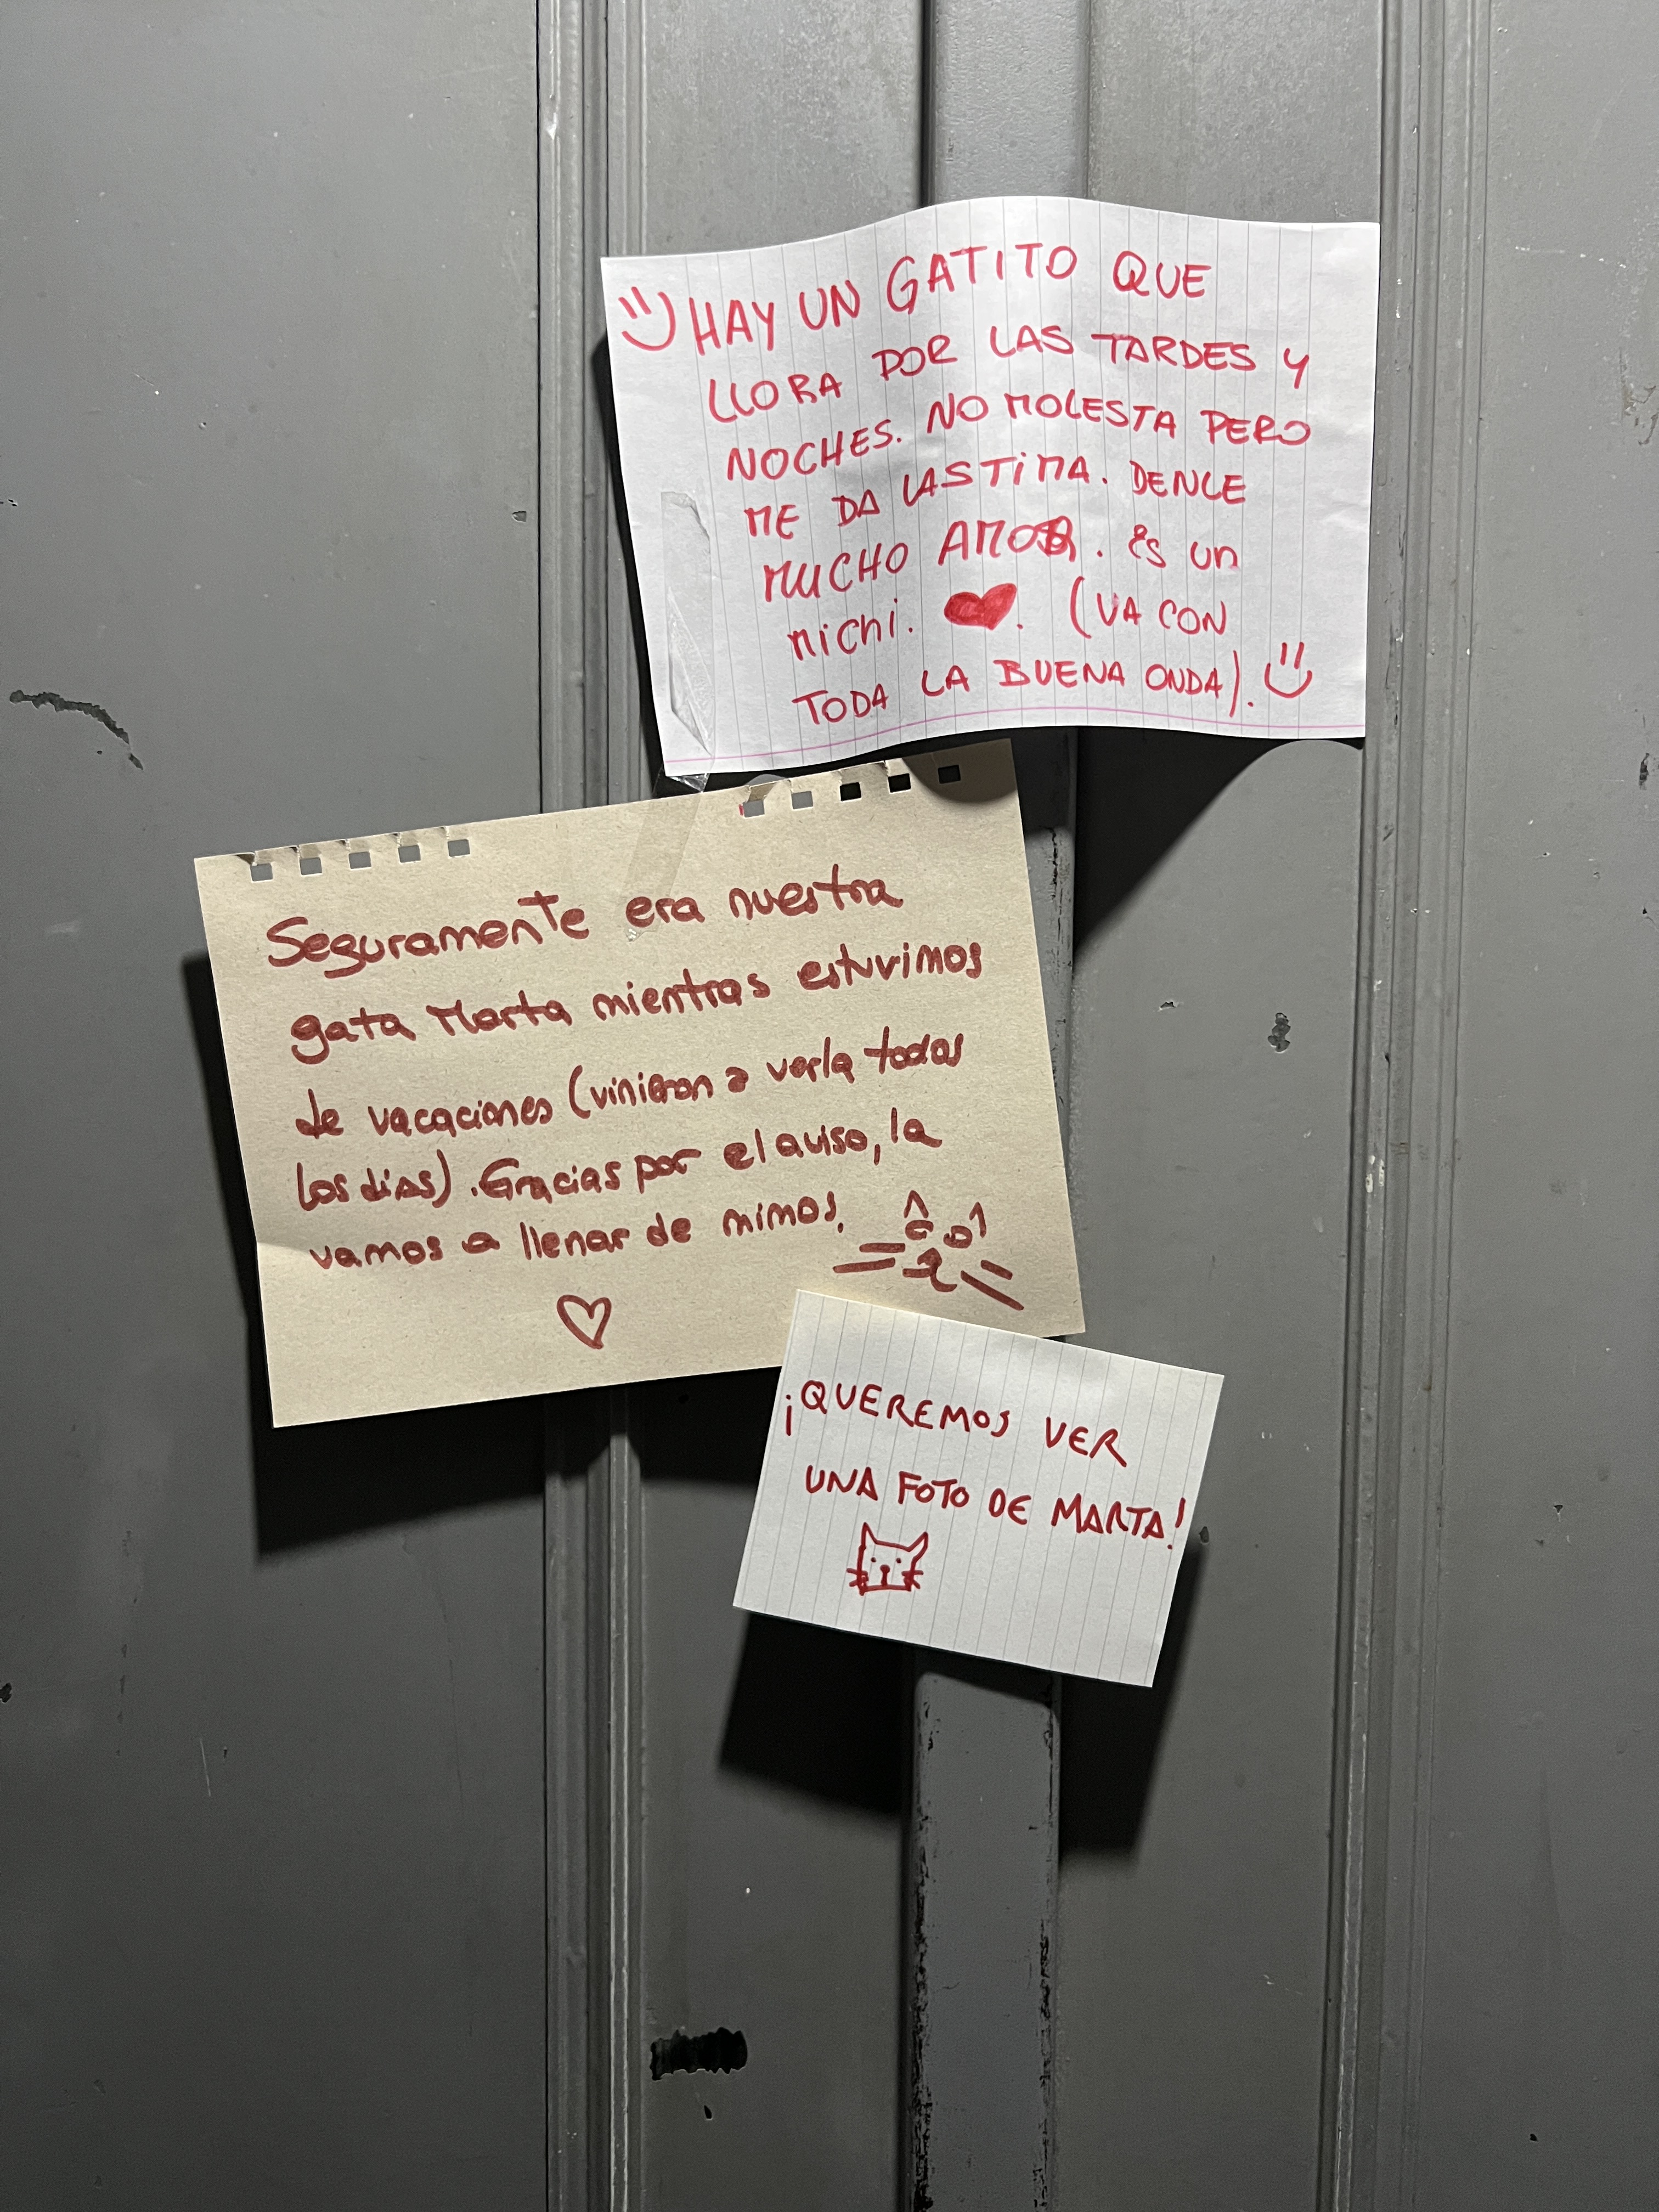 HAY UN GATITO QUE
LLORA POR LAS TARDES Y
NOCHES. NO MOLESTA PERO
ME DA LASTIMA. DENLE
MUCHO AMOR. Es un
michi. (VA CON
TODA LA BUENA ONDA).
Seguramente era nuestra
gata Marta mientras estuvimos
de vacaciones (vinieron a verla todos
los días). Gracias por el aviso, la
vamos a llenar de mimos.
¡QUEREMOS VER
UNA FOTO DE MARTA!